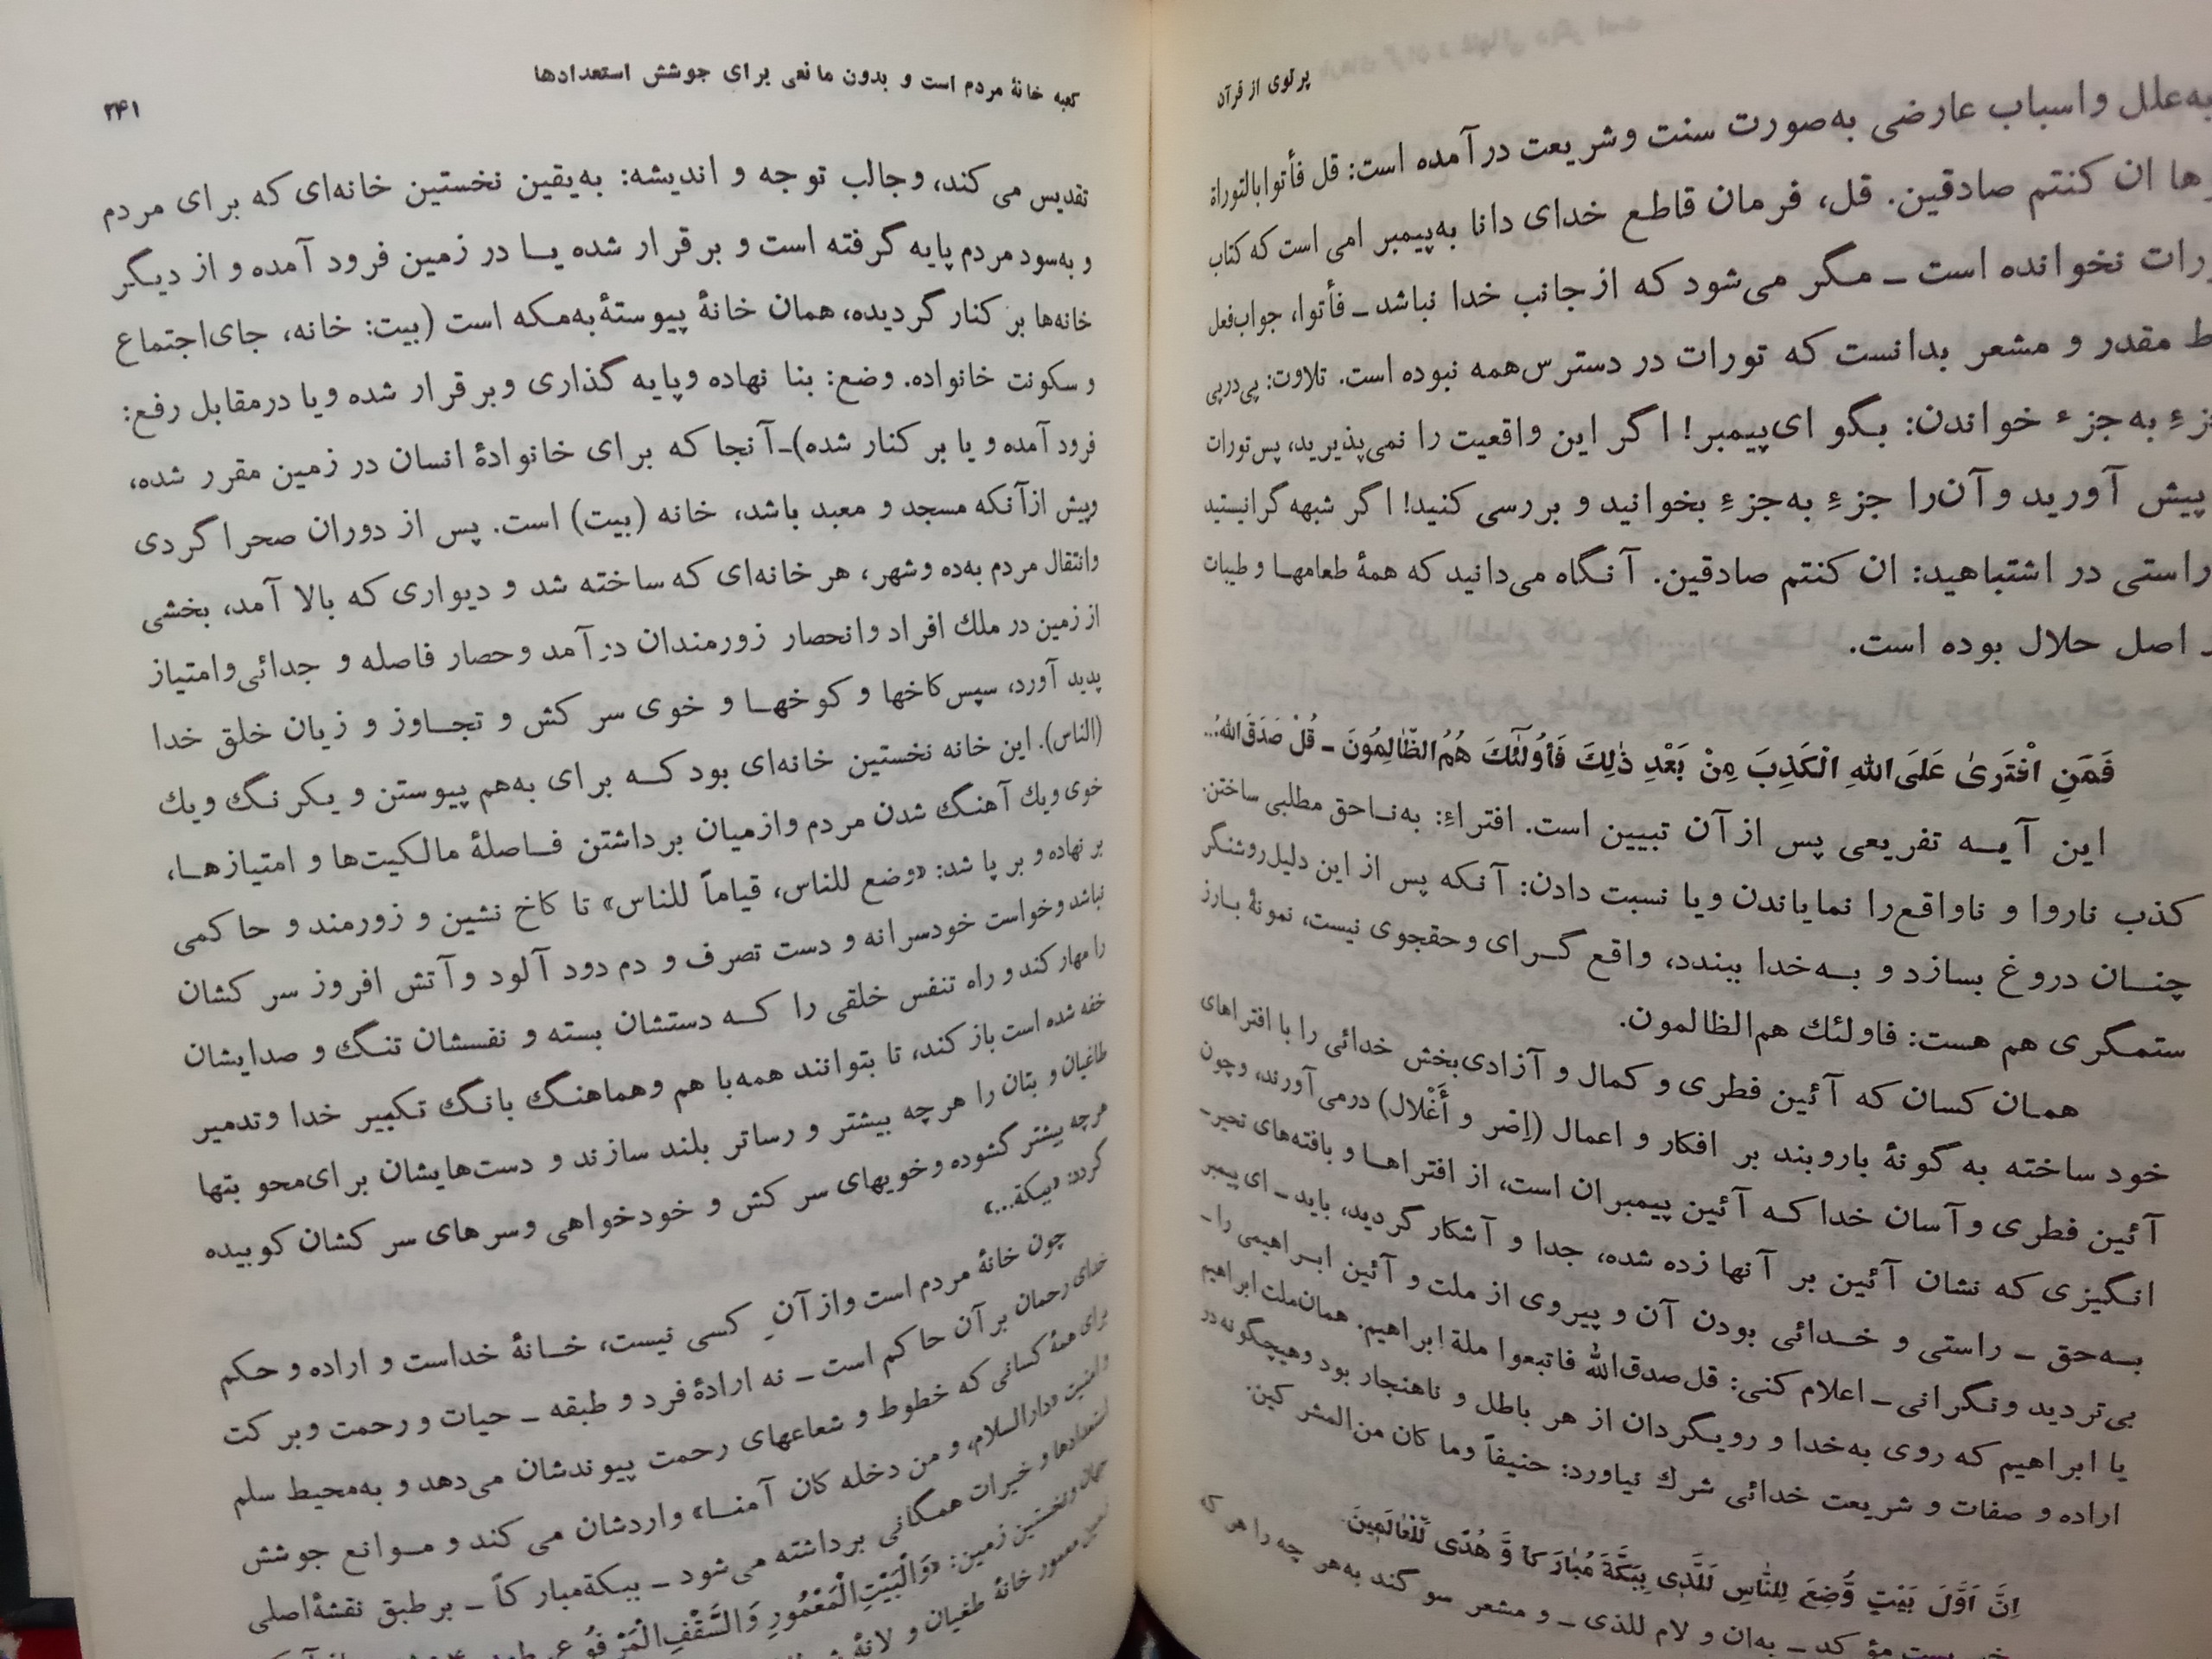 پرتوی از قرآن
به‌علل واسباب عارضی به‌صورت سنت وشریعت درآمده است: قل فأتوابالتوراة
ها ان کنتم صادقین. قل، فرمان قاطع خدای دانا به‌پیمبر امی است که کتاب
رات نخوانده است ـ مگر می‌شود که ازجانب خدا نباشد ـ فأتوا، جواب‌فعل
ط مقدر و مشعر بدانست که تورات در دسترس‌همه نبوده است. تلاوت: پی‌درپی
زءِ به‌جزء خواندن: بگو ای‌پیمبر! اگر این واقعیت را نمی‌پذیرید، پس‌تورات
پیش آورید وآن‌را جزءِ به‌جزءِ بخوانید و بررسی کنید! اگر شبهه گرانیستید
راستی در اشتباهید: ان کنتم صادقین. آنگاه می‌دانید که همهٔ طعامهـا و طیبات
اصل حلال بوده است.
فَمَنِ افْتَرىٰ عَلَى‌اللهِ الْكَذِبَ مِنْ بَعْدِ ذٰلِكَ فَأُولٰئِكَ هُمُ‌الظّالِمُونَ ـ قُلْ صَدَقَ‌اللهُ...
این آیـه تفریعی پس ازآن تبیین است. افتراءِ: به‌نـاحق مطلبی ساختن.
کذب ناروا و ناواقع‌را نمایاندن ویا نسبت دادن: آنکه پس از این دلیل‌روشنگر
چنـان دروغ بسازد و بـه‌خدا ببندد، واقع گـرای وحقجوی نیست، نمونهٔ بـارز
ستمگری هم هست: فاولئك هم‌الظالمون.
همـان کسان که آئین فطری و کمال و آزادی‌بخش خدائی را با افتراهای
خود ساخته به گونهٔ باروبند بر افکار و اعمال (اِصْر و أَغْلال) درمی‌آورند، وچون
آئین فطری وآسان خدا کـه آئین پیمبران است، از افتراهـا و بافته‌های تحیر-
انگیزی که نشان آئین بر آنها زده شده، جدا و آشکار گردید، باید ـ ای پیمبر
بـه‌حق ـ راستی و خـدائی بودن آن و پیروی از ملت و آئین ابـراهیمی را -
بی‌تردید ونگرانی ـ اعلام کنی: قل‌صدق‌الله فاتبعوا ملة ابراهیم. همان‌ملت ابراهیم
یا ابراهیم که روی به‌خدا و رویگردان از هر باطل و ناهنجار بود وهیچگونه‌در
اراده و صفات و شریعت خدائی شرك نیاورد: حنیفاً وما كان من‌المشركين.
اِنَّ اَوَّلَ بَيْتٍ وُضِعَ لِلنّاسِ لَلَّذِى بِبَكَّةَ مُبارَكاً وَ هُدًى لِّلْعالَمِينَ.
مؤکد ـ به‌ان و لام للذی ـ و مشعر سو کند به‌هر چه را هر که
کعبه خانهٔ مردم است و بدون مانعی برای جوشش استعدادها
۲۴۱
تقدیس می‌کند، وجالب توجه و اندیشه: به‌یقین نخستین خانه‌ای که برای مردم
و به‌سود مردم پایه گرفته است و برقرار شده یـا در زمین فرود آمده و از دیگر
خانه‌ها بر کنار گردیده، همان خانهٔ پیوستهٔ به‌مکه است (بیت: خانه، جای‌اجتماع
و سکونت خانواده. وضع: بنا نهاده وپایه گذاری وبرقرار شده ویا درمقابل رفع:
فرود آمده و یا بر کنار شده)ـ آنجا که برای خانوادهٔ انسان در زمین مقرر شده،
وپیش ازآنکه مسجد و معبد باشد، خانه (بیت) است. پس از دوران صحرا گردی
وانتقال مردم به‌ده وشهر، هر خانه‌ای که ساخته شد و دیواری که بالا آمد، بخشی
از زمین در ملك افراد وانحصار زورمندان درآمد وحصار فاصله و جدائی‌وامتیاز
پدید آورد، سپس‌کاخها و کوخهـا و خوی سرکش و تجـاوز و زیان خلق خدا
(الناس). این خانه نخستین خانه‌ای بود کـه برای به‌هم پیوستن و یکرنگ ویك
خوی ویك آهنگ شدن مردم وازمیان برداشتن فـاصلهٔ مالکیت‌ها و امتیازهـا،
بر نهاده و بر پا شد: «وضع للناس، قیاماً للناس» تا کاخ نشین و زورمند و حاکمی
نباشد وخواست خودسرانه و دست تصرف و دم دود آلود وآتش افروز سرکشان
را مهار کند و راه تنفس خلقی را کـه دستشان بسته و نفسشان تنگ و صدایشان
خفه شده است باز کند، تا بتوانند همه‌با هم وهماهنگ بانگ تکبیر خدا وتدمیر
طاغیان و بتان را هرچه بیشتر و رساتر بلند سازند و دست‌هایشان برای‌محو بتها
هرچه بیشتر گشوده وخویهای سرکش و خودخواهی وسرهای سرکشان کوبیده
گردد: «ببکة...»
چون خانهٔ مردم است وازآن کسی نیست، خـانهٔ خداست و اراده و حکم
خدای رحمان برآن حاکم است ـ نه ارادهٔ فرد و طبقه ـ حیات و رحمت وبرکت
برای همهٔ کسانی که خطوط و شعاعهای رحمت پیوندشان می‌دهد و به‌محیط سلم
وامنیت «دارالسلام، و من دخله کان آمنـا» واردشان می‌کند و مـوانع جوشش
استعدادها و خیرات همگانی برداشته می‌شود ـ ببکة‌مبارکاً ـ برطبق نقشهٔ‌اصلی
ونخستین زمین: «وَالْبَيْتِ‌الْمَعْمُورِ وَالسَّقْفِ‌الْمَرْفُوع
معمور خانهٔ طغیان و لانهٔ